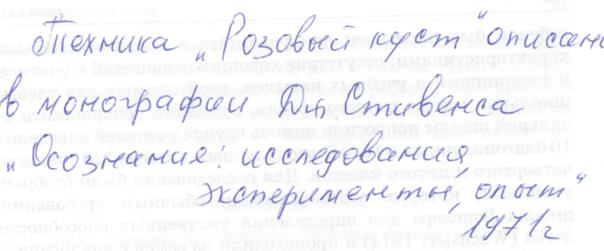 Техника „Розовый куст" описана
в монографии Дж. Стивенса
„Осознания: исследования,
эксперименты, опыт"
1971г